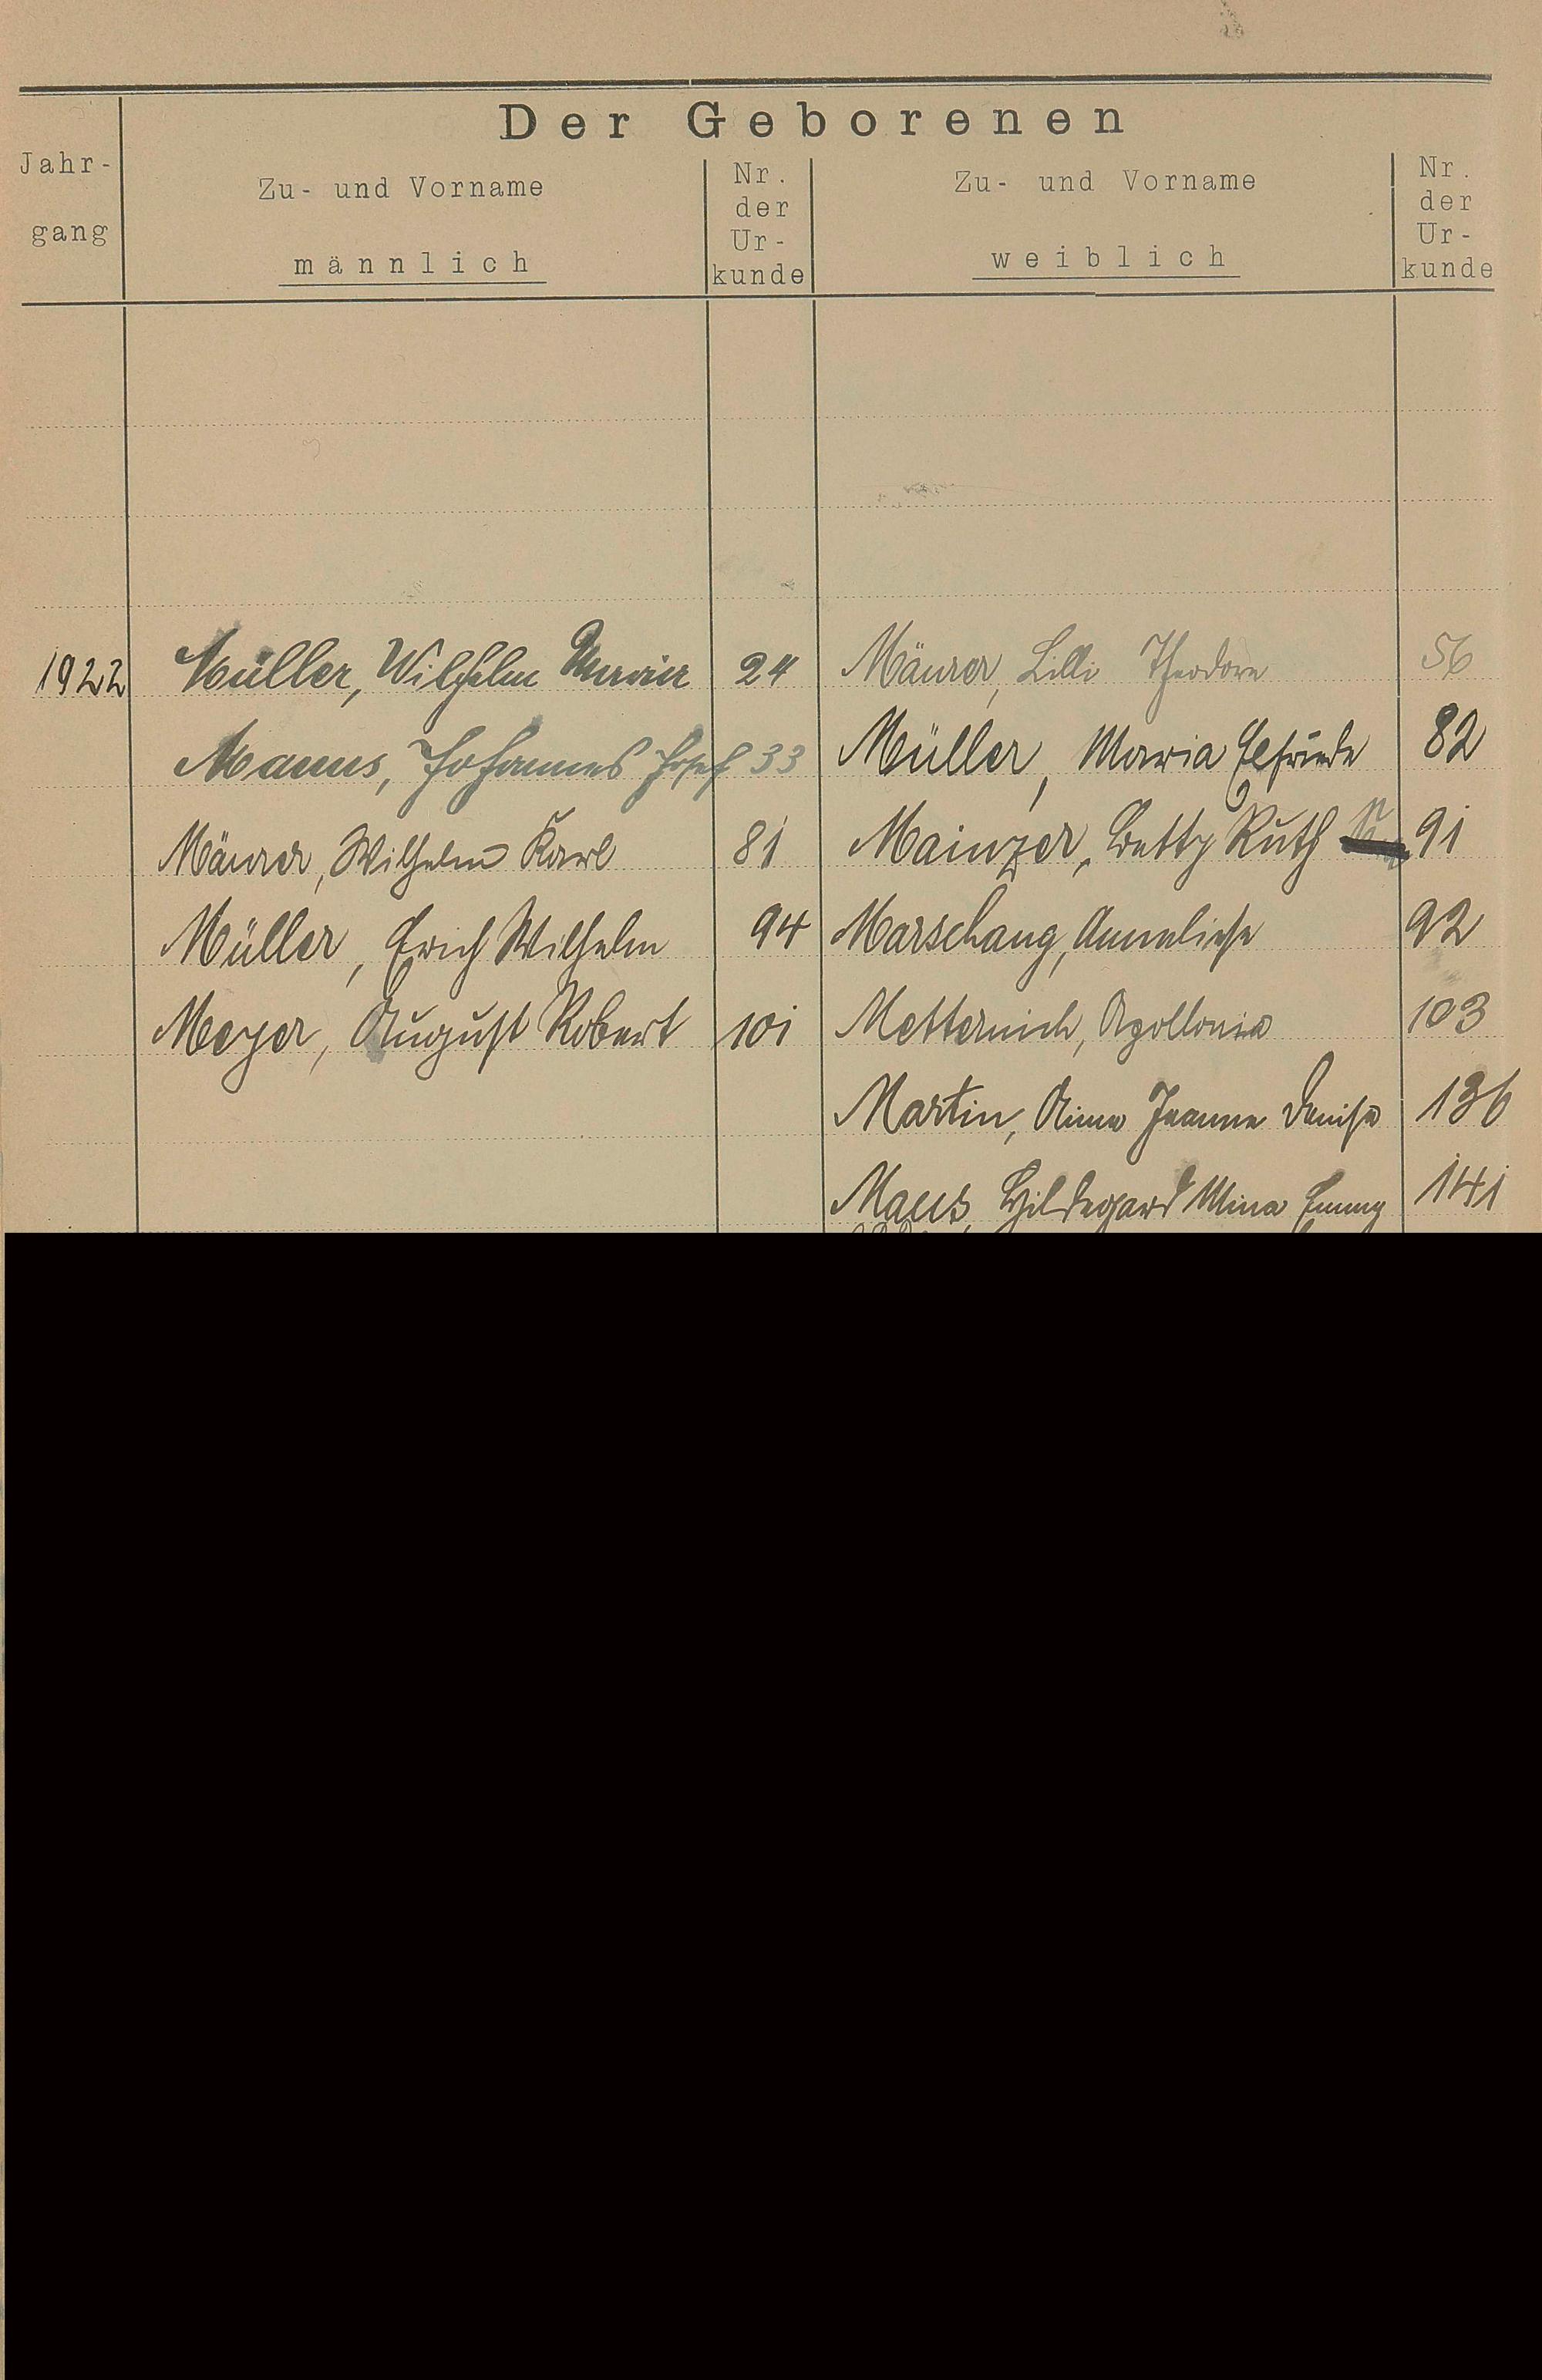 Der Geborenen
Jahr-
gang
Zu- und Vorname
männlich
Nr.
der
Ur-
kunde
Zu- und Vorname
weiblich
Nr.
der
Ur-
kunde
1922 Müller, Wilhelm 24 Mäurer, Lilli Theodore 56
Manns, Johannes Josef 33 Müller, Maria Elfriede 82
Mäurer, Wilhelm Karl 81 Mainzer, Betty Ruth 91
Müller, Erich Wilhelm 94 Marschang, Anneliese 92
Meyer, August Robert 101 Metternich, Apollonia 103
Martin, Aimee Jeanne Denise 136
Maus, Hildegard Mina Emmy 141